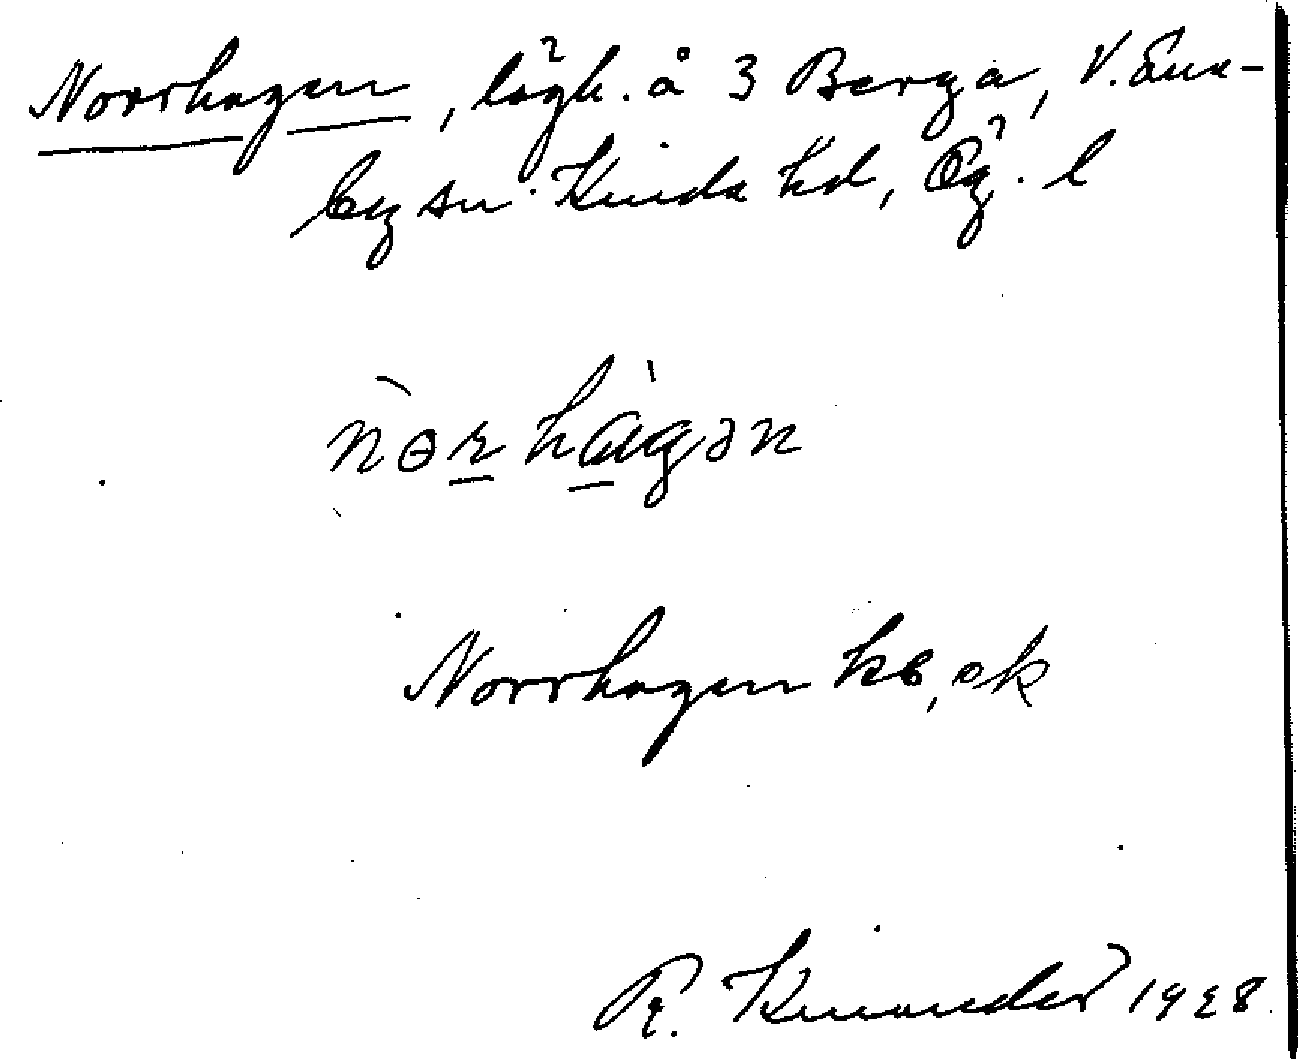 Norrhagen, lägh. å 3 Berga, V. Ene-
by sn. Kinda hd, Ög. l
nòrhàgən
Norrhagen kb, ek
R. Kinander 1928